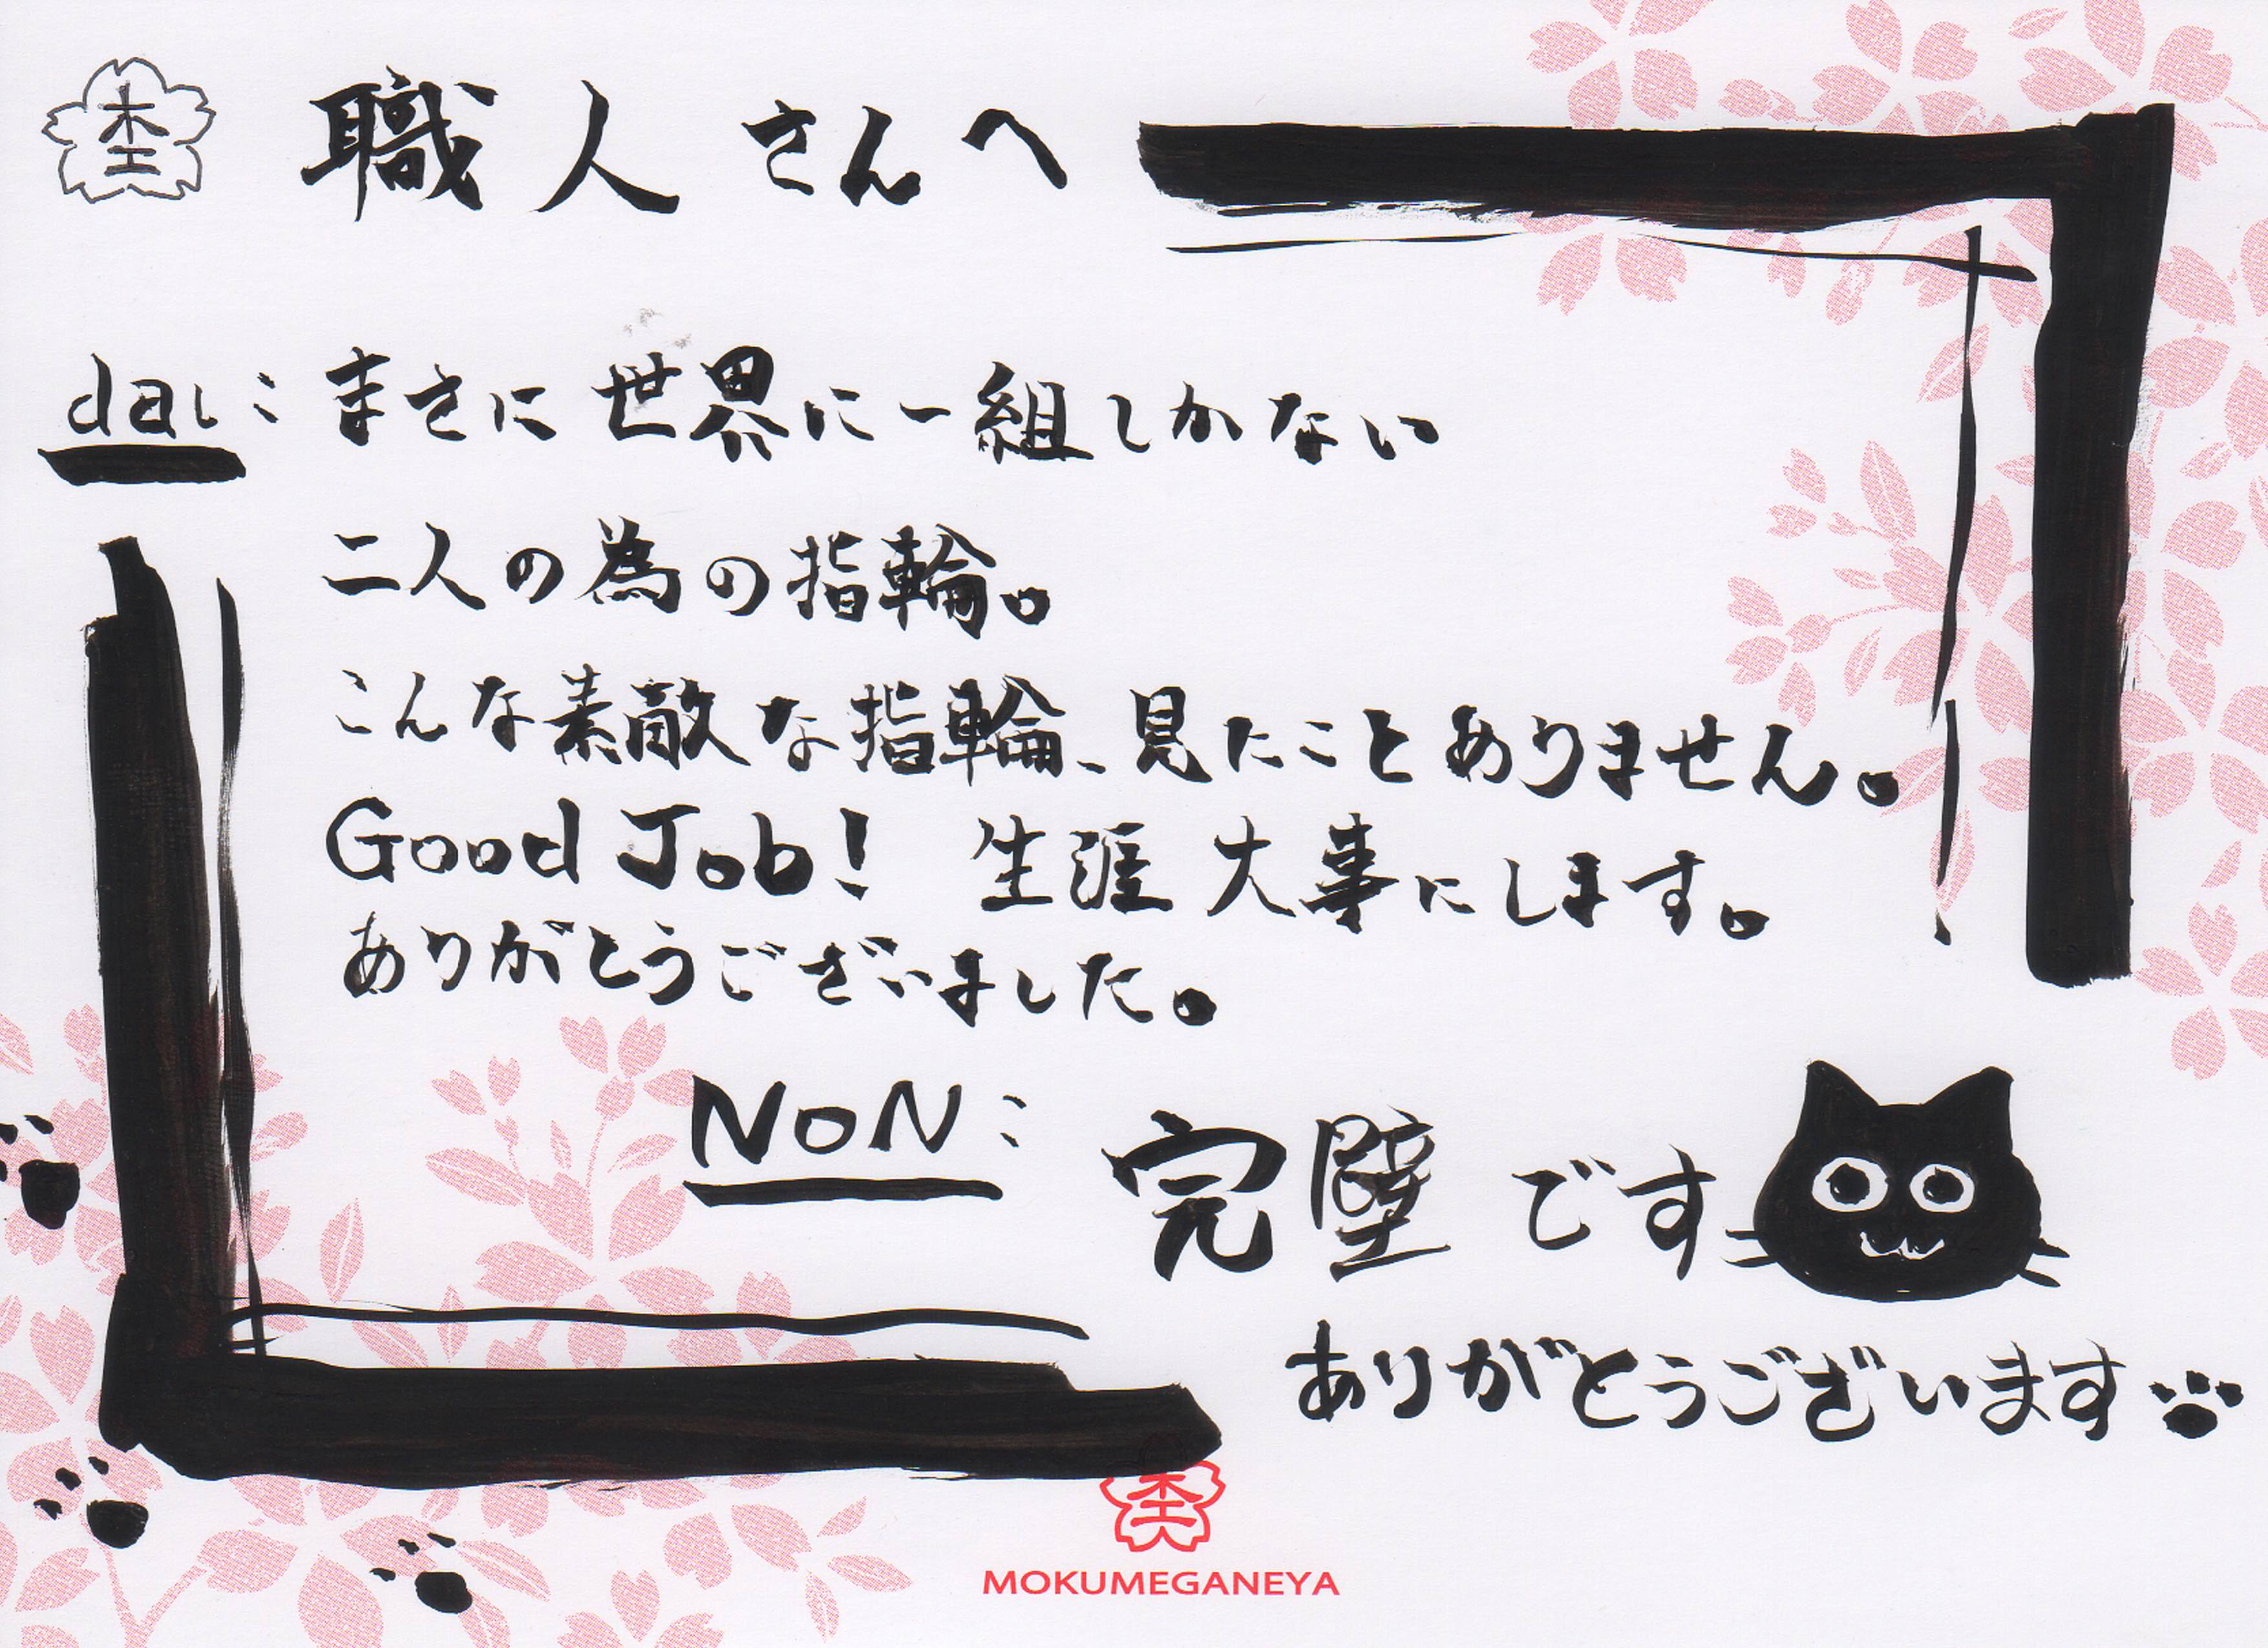 杢
職人さんへ
dai: まさに世界に一組しかない
二人の為の指輪。
こんな素敵な指輪、見たことありません。
Good Job! 生涯大事にします。
ありがとうございました。
NON: 完璧です
ありがとうございます
杢
MOKUMEGANEYA